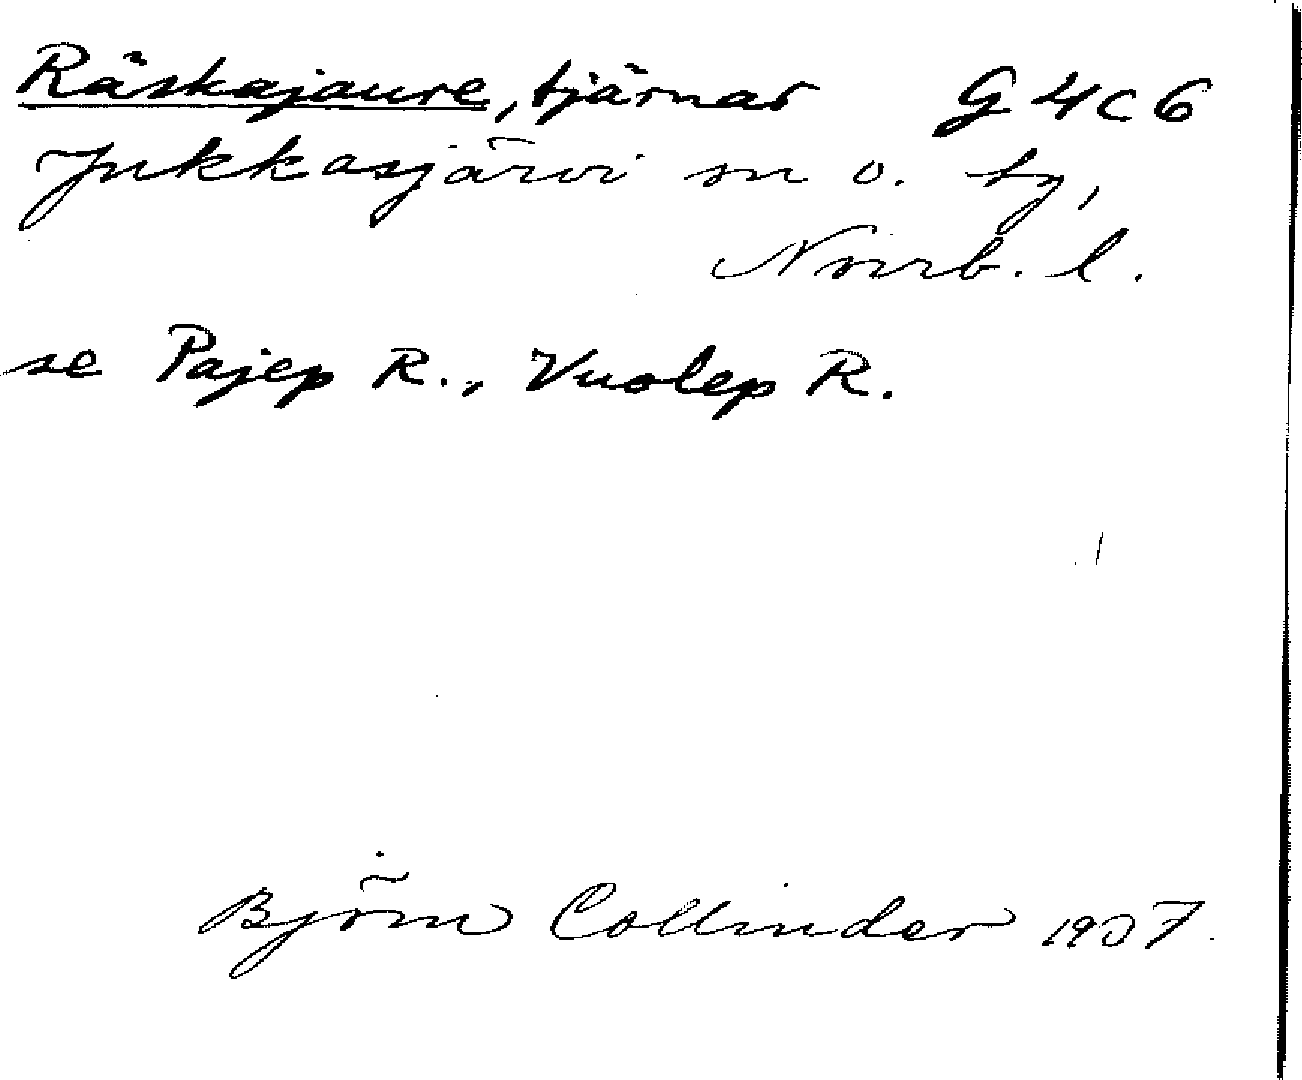 Räskajaure, tjärnar G 4 c 6
Jukkasjärvi sn o. by,
Norrb. l.
se Pajep R., Vuolep R.
Björn Collinder 1907.